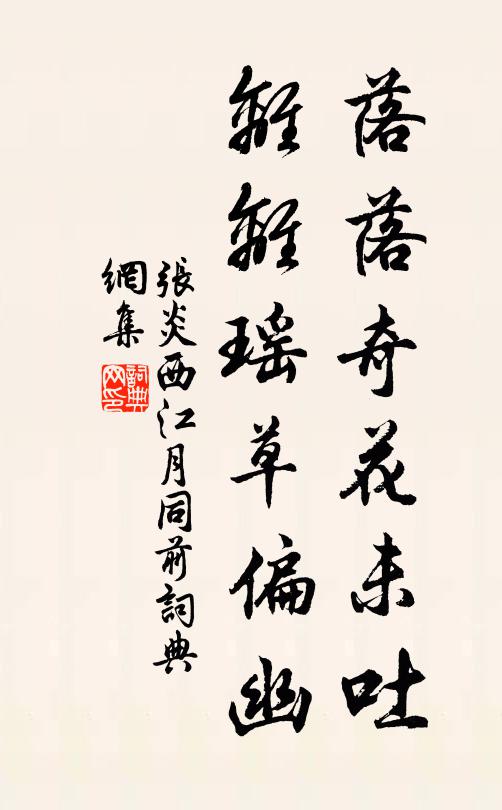 落落奇花未吐
離離瑶草偏幽
張炎西江月同前詞典
網集
詞典
网印